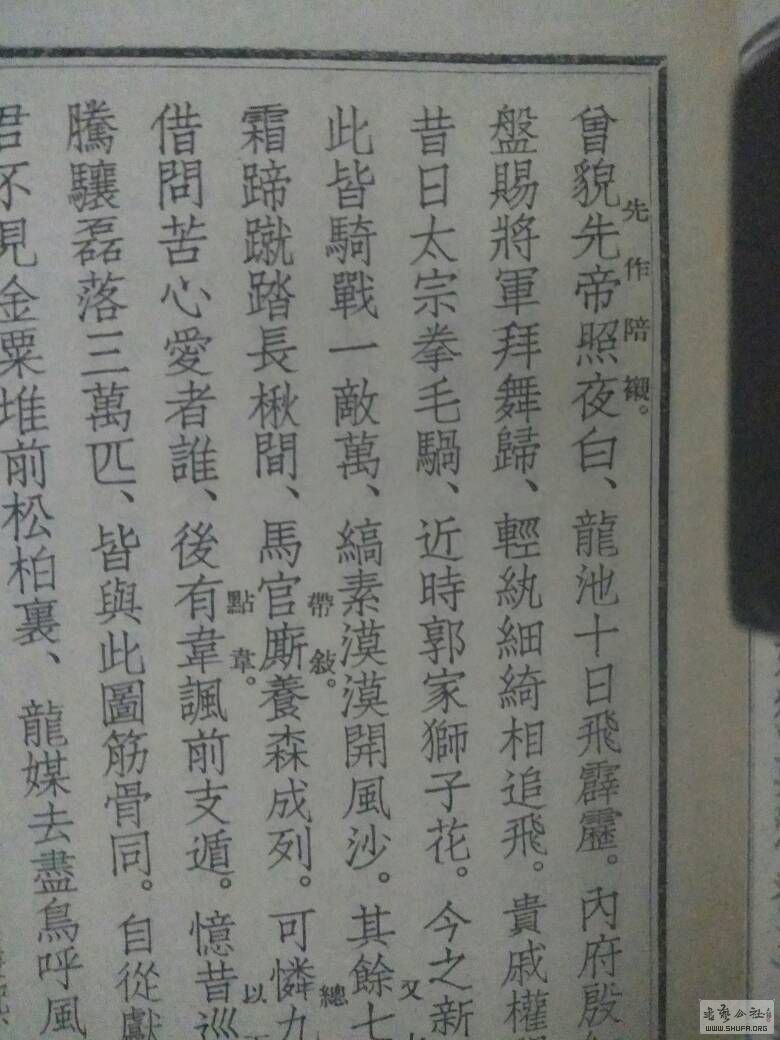 曾貌先帝照夜白、龍池十日飛霹靂。內府殷
先作陪襯。
盤賜將軍拜舞歸、輕紈細綺相追飛。貴戚權
昔日太宗拳毛騧、近時郭家獅子花。今之新
又
此皆騎戰一敵萬、縞素漠漠開風沙。其餘七
帶敍。
總
霜蹄蹴踏長楸間、馬官廝養森成列。可憐九
點韋。
以
借問苦心愛者誰、後有韋諷前支遁。憶昔巡
騰驤磊落三萬匹、皆與此圖筋骨同。自從獻
君不見金粟堆前松柏裏、龍媒去盡鳥呼風
書藝公社
WWW.SHUFA.ORG